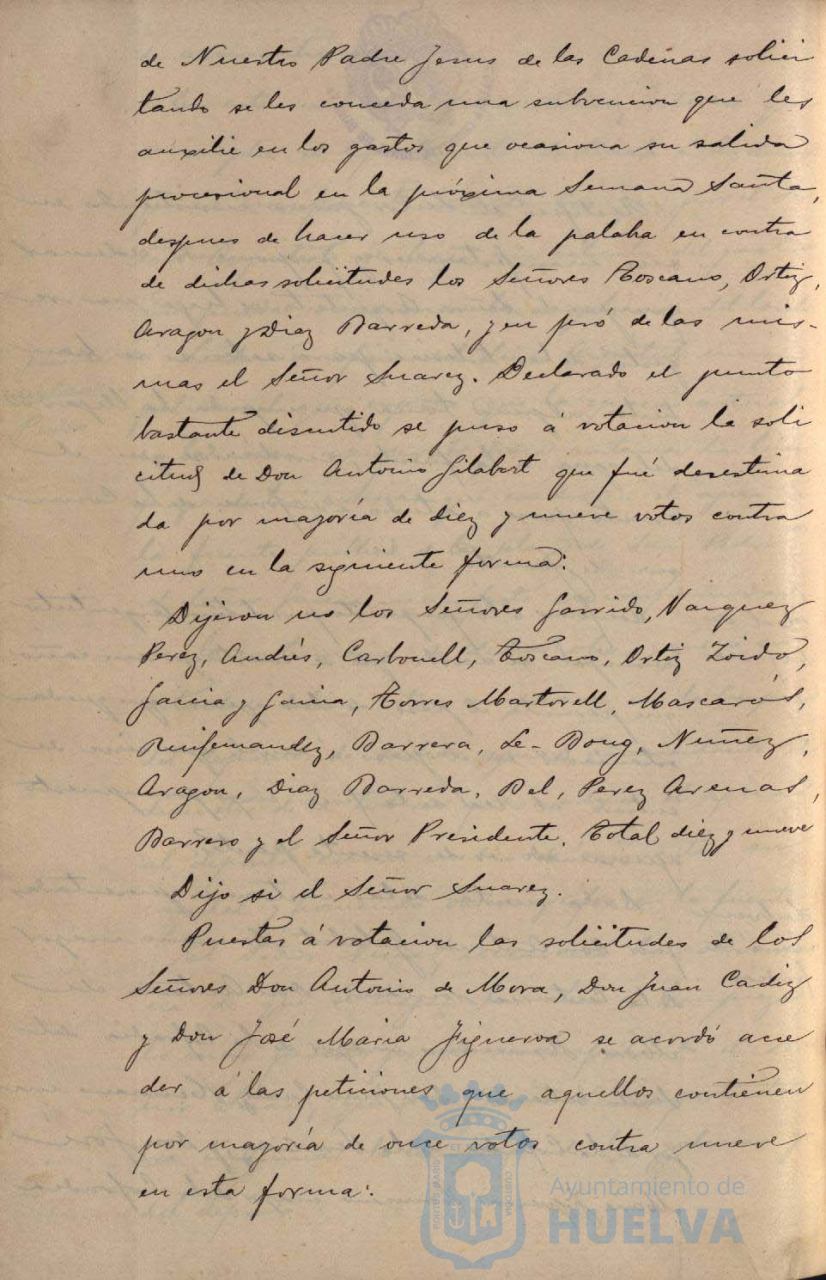 de Nuestro Padre Jesus de las Cadenas solici
tando se les conceda una subvencion que les
auxilie en los gastos que ocasiona su salida
procesional en la próxima Semana Santa,
despues de hacer uso de la palaba en contra
de dichas solicitudes los Señores Toscano, Ortiz,
Aragon y Diaz Barreda, y en pró de las mis-
mas el Señor Suarez. Declarado el punto
bastante discutido se puso á votacion la soli
citud de Don Antonio Gilabert que fué desestima
da por mayoría de diez y nueve votos contra
uno en la siguiente forma:
Dijeron no los Señores Garrido, Vazquez
Perez, Andrés, Carbonell, Toscano, Ortiz Zoido,
Garcia y Garcia, Torres Martorell, Mascarós,
Ruifernandez, Barrera, Le-Bourg, Nuñez,
Aragon, Diaz Barreda, Bel, Perez Arenas,
Barrero y el Señor Presidente. Total diez y nueve
Dijo si el Señor Suarez.
Puestas á votacion las solicitudes de los
Señores Don Antonio de Mora, Don Juan Cadiz
y Don José Maria Figueroa se acordó acce
der á las peticiones que aquellos contienen
por mayoría de once votos contra nueve
en esta forma:
Ayuntamiento de
HUELVA